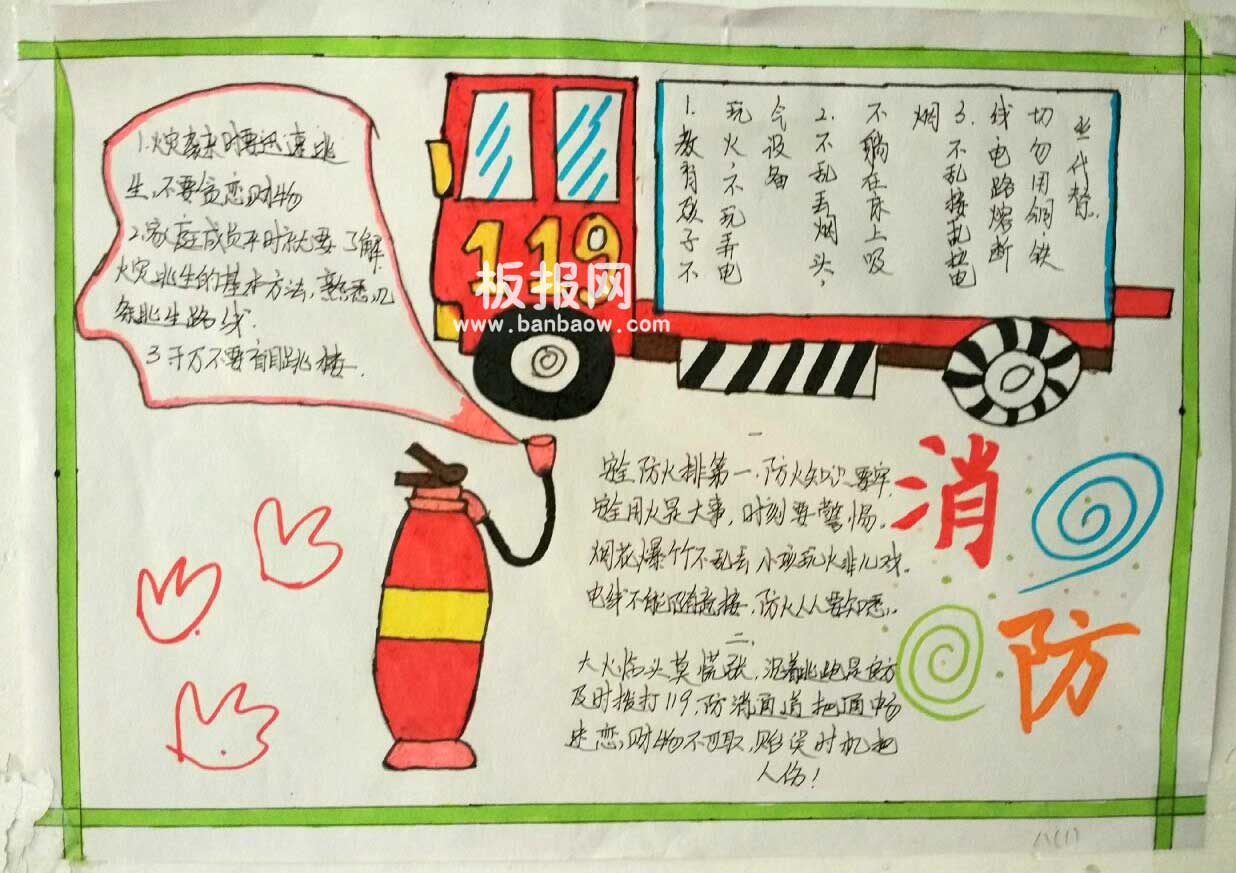 1.火灾袭来时要迅速逃
生,不要贪恋财物
2.家庭成员平时就要了解
火灾逃生的基本方法,熟悉几
条逃生路线.
3千万不要盲目跳楼.
119
1.教育孩子不
玩火,不玩弄电
气设备
2.不乱丢烟头,
不躺在床上吸
烟
3.不乱接乱拉电
线电路熔断
切勿用铜、铁
丝代替.
板报网
www.banbaow.com
消
防
一
安全防火排第一.防火知识要牢
安全用火是大事,时刻要警惕.
烟花爆竹不乱丢 小孩玩火非儿戏.
电线不能随意接.防火人人要知悉.
二.
大火临头莫慌张,沉着逃跑是良方
及时拨打119,防消通道把通畅
迷恋财物不可取.贻误时机把
人伤!
八(1)